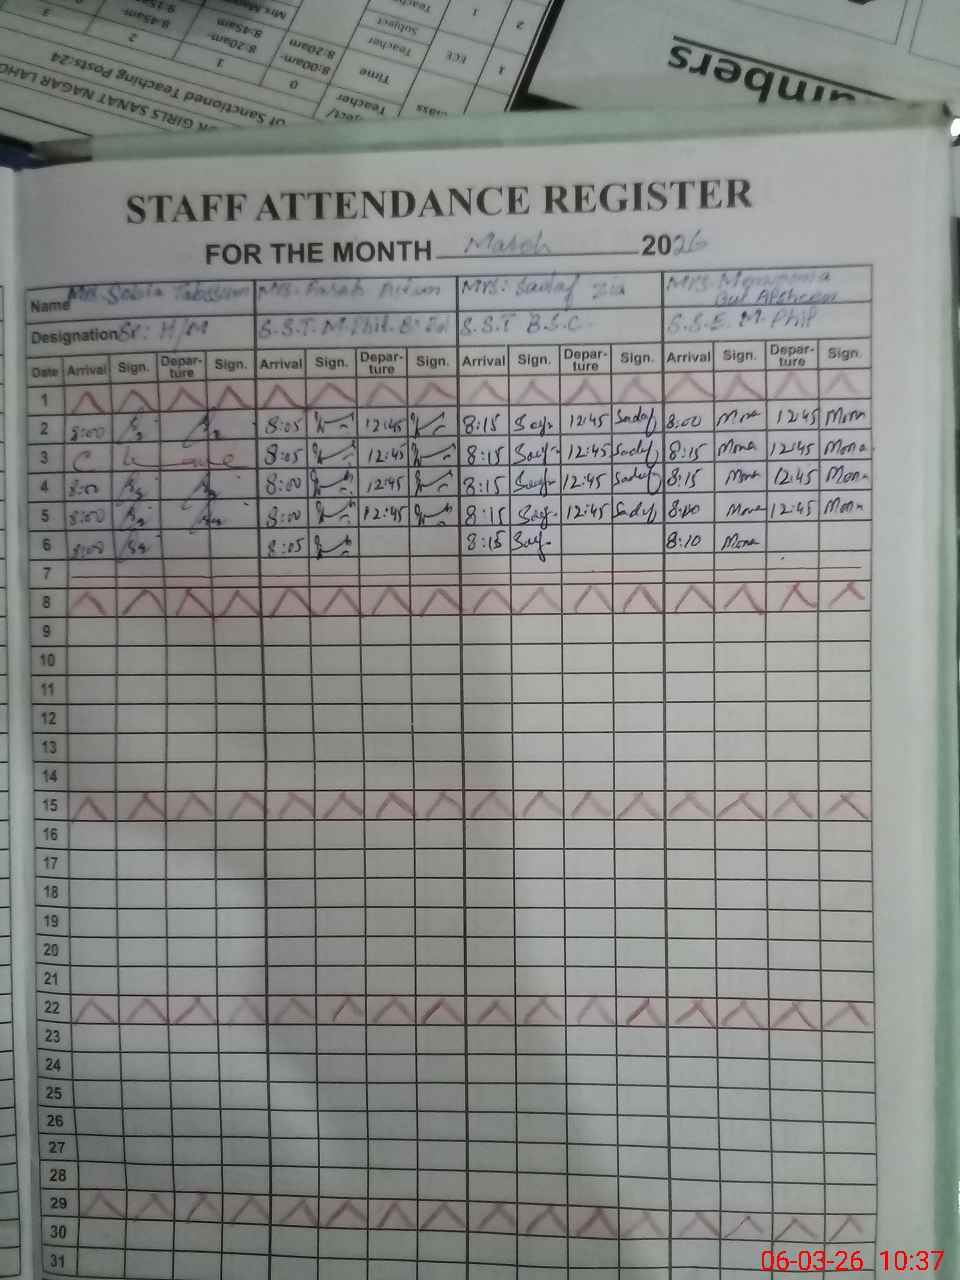 umbers
GIRLS SANAT NAGAR LAH
of Sanctioned Teaching Posts:24
Teacher
Time
8:00am-
8:20am
8:20am-
8:45am
8:45am-
Teacher
Subject
ECE
STAFF ATTENDANCE REGISTER
FOR THE MONTH March 2026
Name Mrs. Sobia Tabassum Mrs. Farah Mrs: Sadaf Zia Mrs.
Designation Sr: H/M S.S.T M.Phil B.Ed S.S.T B.S.C. S.S.E. M.Phil
Date Arrival Sign. Depar-ture Sign. Arrival Sign. Depar-ture Sign. Arrival Sign. Depar-ture Sign. Arrival Sign. Depar-ture Sign.
1
2 8:00 8:05 12:45 8:15 12:45 Sadaf 8:00 Mona 12:45 Mona
3 C Leave 8:05 12:45 8:15 12:45 Sadaf 8:15 Mona 12:45 Mona
4 8:00 8:00 12:45 8:15 12:45 Sadaf 8:15 Mona 12:45 Mona
5 8:00 8:00 12:45 8:15 12:45 Sadaf 8:00 Mona 12:45 Mona
6 8:00 8:05 8:15 8:10 Mona
7
8
9
10
11
12
13
14
15
16
17
18
19
20
21
22
23
24
25
26
27
28
29
30
31
06-03-26 10:37